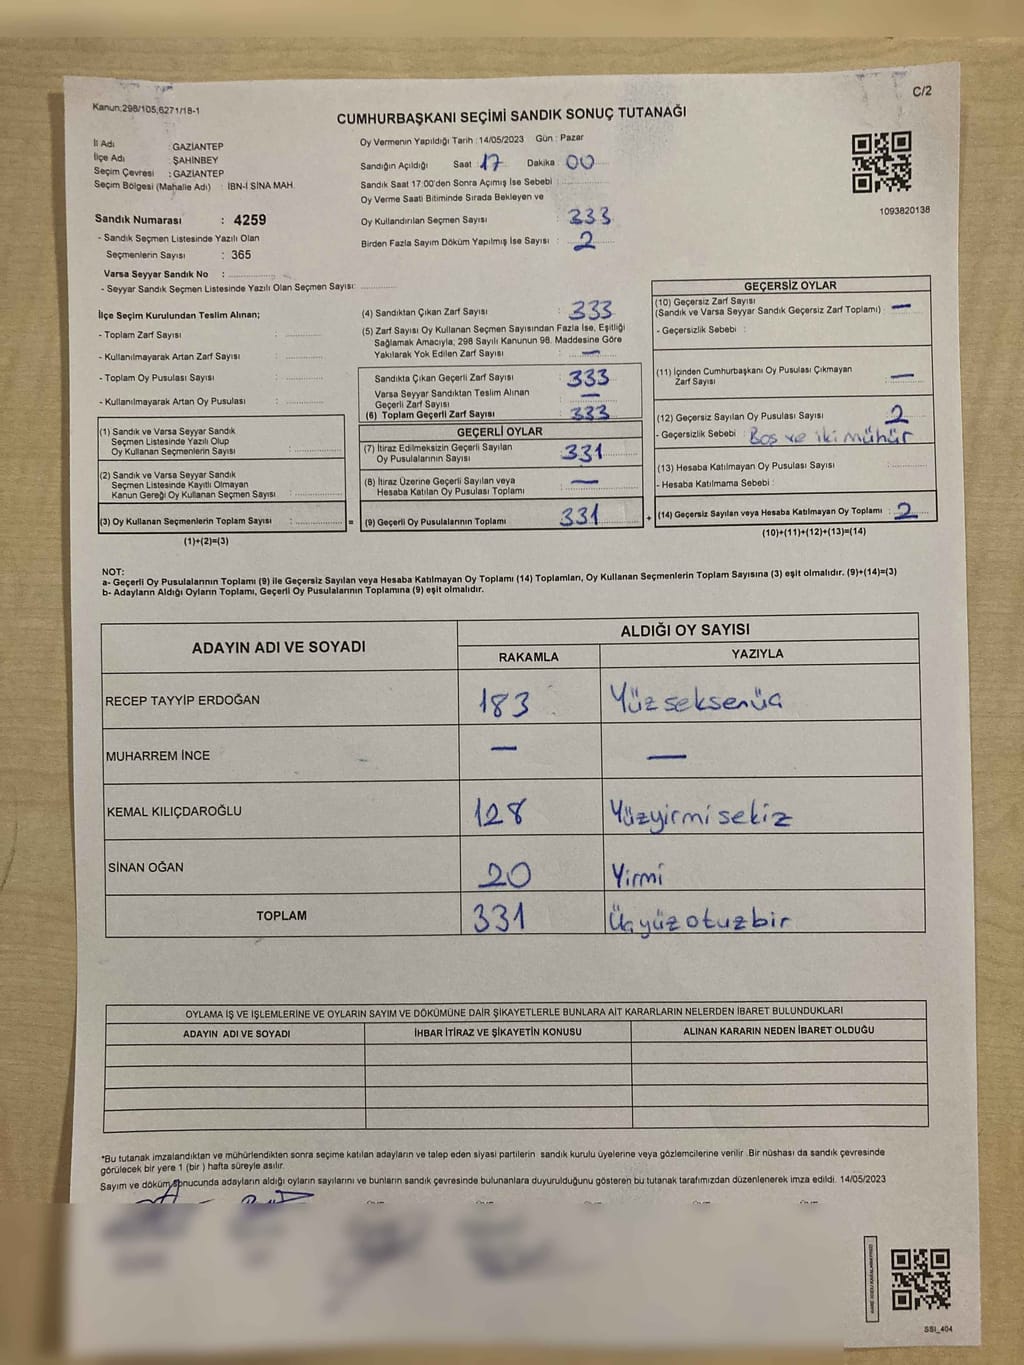 Kanun:298/105,6271/18-1
C/2
CUMHURBAŞKANI SEÇİMİ SANDIK SONUÇ TUTANAĞI
İl Adı : GAZİANTEP
İlçe Adı : ŞAHİNBEY
Seçim Çevresi : GAZİANTEP
Seçim Bölgesi (Mahalle Adı) : İBN-İ SİNA MAH.
Sandık Numarası : 4259
- Sandık Seçmen Listesinde Yazılı Olan
Seçmenlerin Sayısı : 365
Varsa Seyyar Sandık No :
- Seyyar Sandık Seçmen Listesinde Yazılı Olan Seçmen Sayısı:
Oy Vermenin Yapıldığı Tarih : 14/05/2023 Gün : Pazar
Sandığın Açıldığı Saat : 17 Dakika : 00
Sandık Saat 17:00'den Sonra Açımış İse Sebebi :
Oy Verme Saati Bitiminde Sırada Bekleyen ve
Oy Kullandırılan Seçmen Sayısı : 333
Birden Fazla Sayım Döküm Yapılmış İse Sayısı : 2
1093820138
İlçe Seçim Kurulundan Teslim Alınan;
- Toplam Zarf Sayısı :
- Kullanılmayarak Artan Zarf Sayısı :
- Toplam Oy Pusulası Sayısı :
- Kullanılmayarak Artan Oy Pusulası :
(1) Sandık ve Varsa Seyyar Sandık
Seçmen Listesinde Yazılı Olup
Oy Kullanan Seçmenlerin Sayısı :
(2) Sandık ve Varsa Seyyar Sandık
Seçmen Listesinde Kayıtlı Olmayan
Kanun Gereği Oy Kullanan Seçmen Sayısı :
(3) Oy Kullanan Seçmenlerin Toplam Sayısı : =
(1)+(2)=(3)
(4) Sandıktan Çıkan Zarf Sayısı : 333
(5) Zarf Sayısı Oy Kullanan Seçmen Sayısından Fazla İse, Eşitliği
Sağlamak Amacıyla, 298 Sayılı Kanunun 98. Maddesine Göre
Yakılarak Yok Edilen Zarf Sayısı : —
Sandıkta Çıkan Geçerli Zarf Sayısı : 333
Varsa Seyyar Sandıktan Teslim Alınan
Geçerli Zarf Sayısı : —
(6) Toplam Geçerli Zarf Sayısı : 333
GEÇERLİ OYLAR
(7) İtiraz Edilmeksizin Geçerli Sayılan
Oy Pusulalarının Sayısı : 331
(8) İtiraz Üzerine Geçerli Sayılan veya
Hesaba Katılan Oy Pusulası Toplamı : —
(9) Geçerli Oy Pusulalarının Toplamı : 331 +
GEÇERSİZ OYLAR
(10) Geçersiz Zarf Sayısı
(Sandık ve Varsa Seyyar Sandık Geçersiz Zarf Toplamı) : —
- Geçersizlik Sebebi :
(11) İçinden Cumhurbaşkanı Oy Pusulası Çıkmayan
Zarf Sayısı : —
(12) Geçersiz Sayılan Oy Pusulası Sayısı : 2
- Geçersizlik Sebebi : Boş ve iki mühür
(13) Hesaba Katılmayan Oy Pusulası Sayısı :
- Hesaba Katılmama Sebebi :
(14) Geçersiz Sayılan veya Hesaba Katılmayan Oy Toplamı : 2
(10)+(11)+(12)+(13)=(14)
NOT:
a- Geçerli Oy Pusulalarının Toplamı (9) ile Geçersiz Sayılan veya Hesaba Katılmayan Oy Toplamı (14) Toplamları, Oy Kullanan Seçmenlerin Toplam Sayısına (3) eşit olmalıdır. (9)+(14)=(3)
b- Adayların Aldığı Oyların Toplamı, Geçerli Oy Pusulalarının Toplamına (9) eşit olmalıdır.
ADAYIN ADI VE SOYADI
ALDIĞI OY SAYISI
RAKAMLA YAZIYLA
RECEP TAYYİP ERDOĞAN 183 Yüzseksenüç
MUHARREM İNCE — —
KEMAL KILIÇDAROĞLU 128 Yüzyirmisekiz
SİNAN OĞAN 20 Yirmi
TOPLAM 331 Üçyüzotuzbir
OYLAMA İŞ VE İŞLEMLERİNE VE OYLARIN SAYIM VE DÖKÜMÜNE DAİR ŞİKAYETLERLE BUNLARA AİT KARARLARIN NELERDEN İBARET BULUNDUKLARI
ADAYIN ADI VE SOYADI İHBAR İTİRAZ VE ŞİKAYETİN KONUSU ALINAN KARARIN NEDEN İBARET OLDUĞU
*Bu tutanak imzalandıktan ve mühürlendikten sonra seçime katılan adayların ve talep eden siyasi partilerin sandık kurulu üyelerine veya gözlemcilerine verilir .Bir nüshası da sandık çevresinde
görülecek bir yere 1 (bir ) hafta süreyle asılır.
Sayım ve döküm sonucunda adayların aldığı oyların sayılarını ve bunların sandık çevresinde bulunanlara duyurulduğunu gösteren bu tutanak tarafımızdan düzenlenerek imza edildi. 14/05/2023
SSI_404